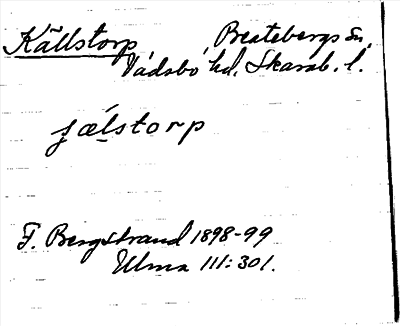 Källstorp Beatebergs sn,
Vadsbo hd, Skarab. l.
fǽl̠storp
F. Bergstrand 1898-99
Ulma 111:301.